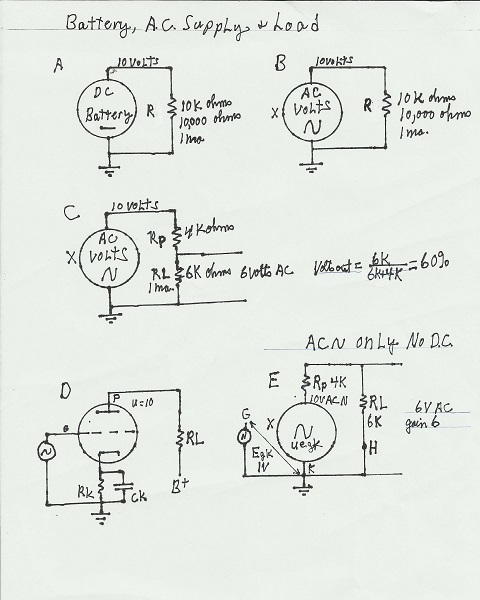 Battery, A.C. Supply & Load
A
10 VOLTS
DC
Battery
R
10K ohms
10,000 ohms
1 ma.
B
10 VOLTS
X
AC
VOLTS
R
10K ohms
10,000 ohms
1 ma.
C
10 VOLTS
X
AC
VOLTS
Rp
4K ohms
RL
1 ma.
6K ohms 6 Volts AC
Volts out = 6K / 6K+4K = 60%
ACN only No D.C.
D
P
u=10
G
RL
Rk
Ck
B+
E
Rp 4K
10V ACN
G
X
N
uegk
Egk
1V
K
RL
6K
H
6V AC
gain 6